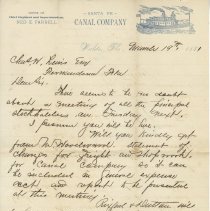 OFFICE OF
Chief Engineer and Superintendent,
NED E. FARRELL
SANTA FE
CANAL COMPANY
Waldo, Fla. November 19th, 1881
Chas. W. Lewis Esq
Fernandina Fla
Dear Sir,
There seems to be no doubt
about a meeting of all the principal
stockholders on Tuesday next.
I presume you will be here.
Will you kindly get
from Mr. statement of
charges for freight on Shop work
for Canal Company so it can
be included in General expense
acct. and report to be presented
at this meeting